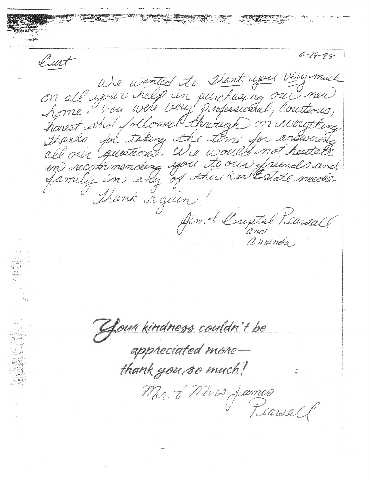 Curt
We wanted to thank you very much
on all your help in purchasing our new
home. You were very professional, courteous,
honest and followed through on everything
Thanks for taking the time for answering
all our questions. We would not hesitate
in recommending you to our friends and
family in any of their Real Estate needs.
Thank Again!
Jim & Crystal Pearsall
and
Amanda
Your kindness couldn't be
appreciated more—
thank you, so much!
Mr. & Mrs James
Pearsall